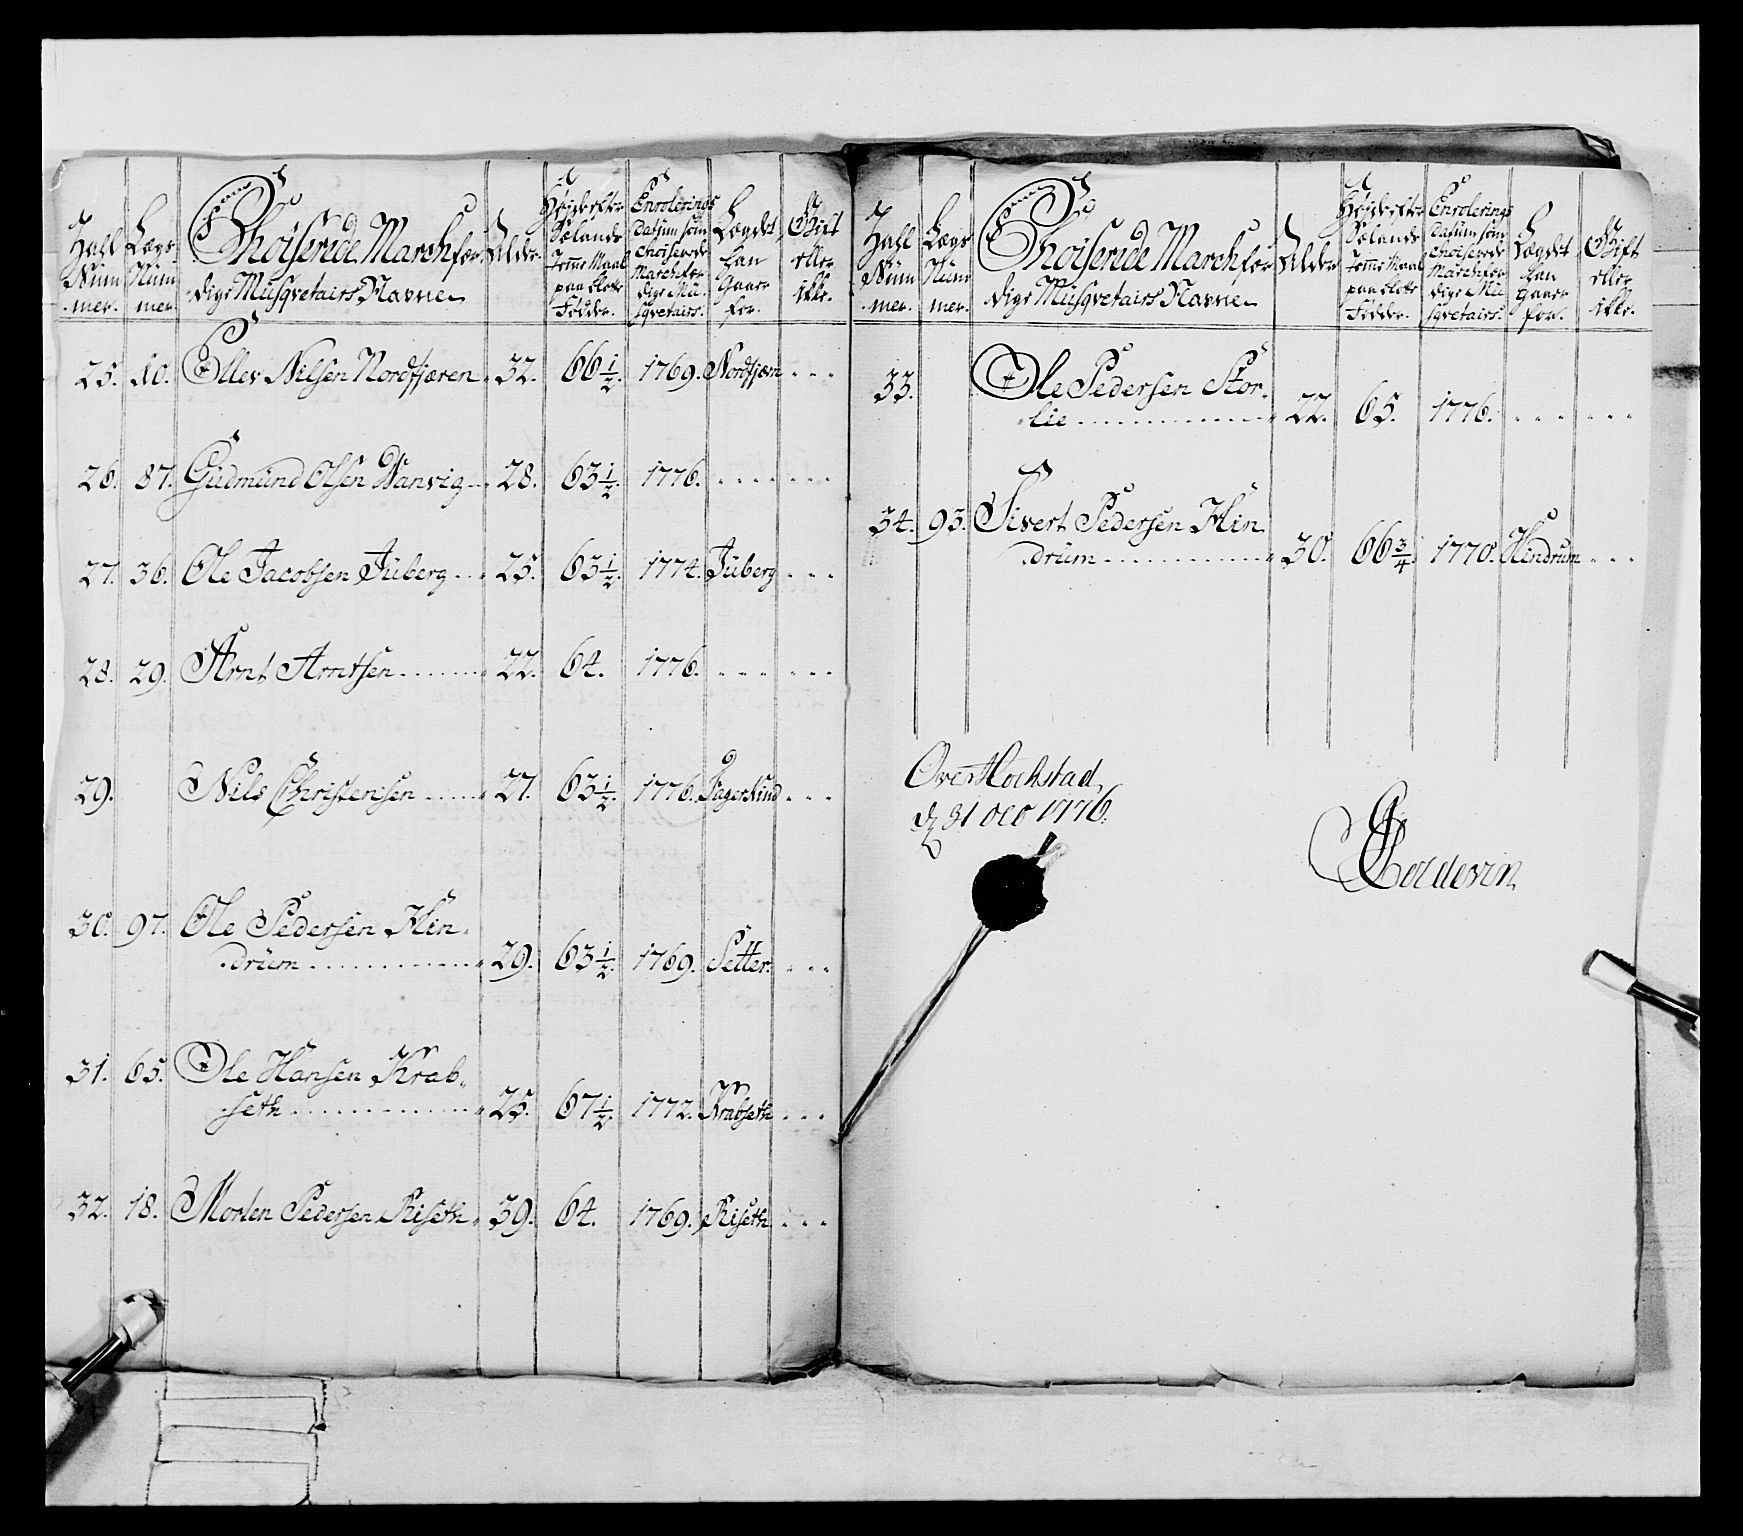 Tall Num mer.
Lægs Num mer.
Choiserede Marchfær
dige Musqvetairs Navne
Alder.
Høide efter Sælands Tomme Maal paa blotte Fødder.
Enrolerings Datum som choiserede Marchfær dige Mu sqvetairs.
Lægdet han Gaaer for.
Gift eller ikke.
25. 10. Eller Nilsen Nordfjæren 32. 66 1/2. 1769. Nordfjærn
26. 87. Gudmund Olsen Wanvig 28. 63 1/2. 1776.
27. 36. Ole Jacobsen Juberg 25. 63 1/2. 1774. Juberg
28. 29. Arnt Arntsen 22. 64. 1776.
29. Nils Christensen 27. 63 1/2. 1776. Fagerlind
30. 97. Ole Pedersen Hin
drum 29. 63 1/2. 1769. Setter.
31. 65. Ole Hansen Krab
seth 25. 67 1/2. 1772. Krabseth
32. 18. Morten Pedersen Riseth 39. 64. 1769. Riseth
Tall Num mer.
Lægs Num mer.
Choiserede Marchfær
dige Musqvetairs Navne
Alder
Høide efter Sælands Tomme Maal paa blotte Fødder.
Enrolerings Datum som choiserede Marchfær dige Mu sqvetairs.
Lægdet han Gaaer for.
Gift eller ikke.
33. Ole Pedersen Stor
lie 22. 65. 1776.
34. 93. Sivert Pedersen Hin
drum 30. 66 3/4 1770. Hindrum
Over Hochstad
d 31 Dec 1776.
Coldevin